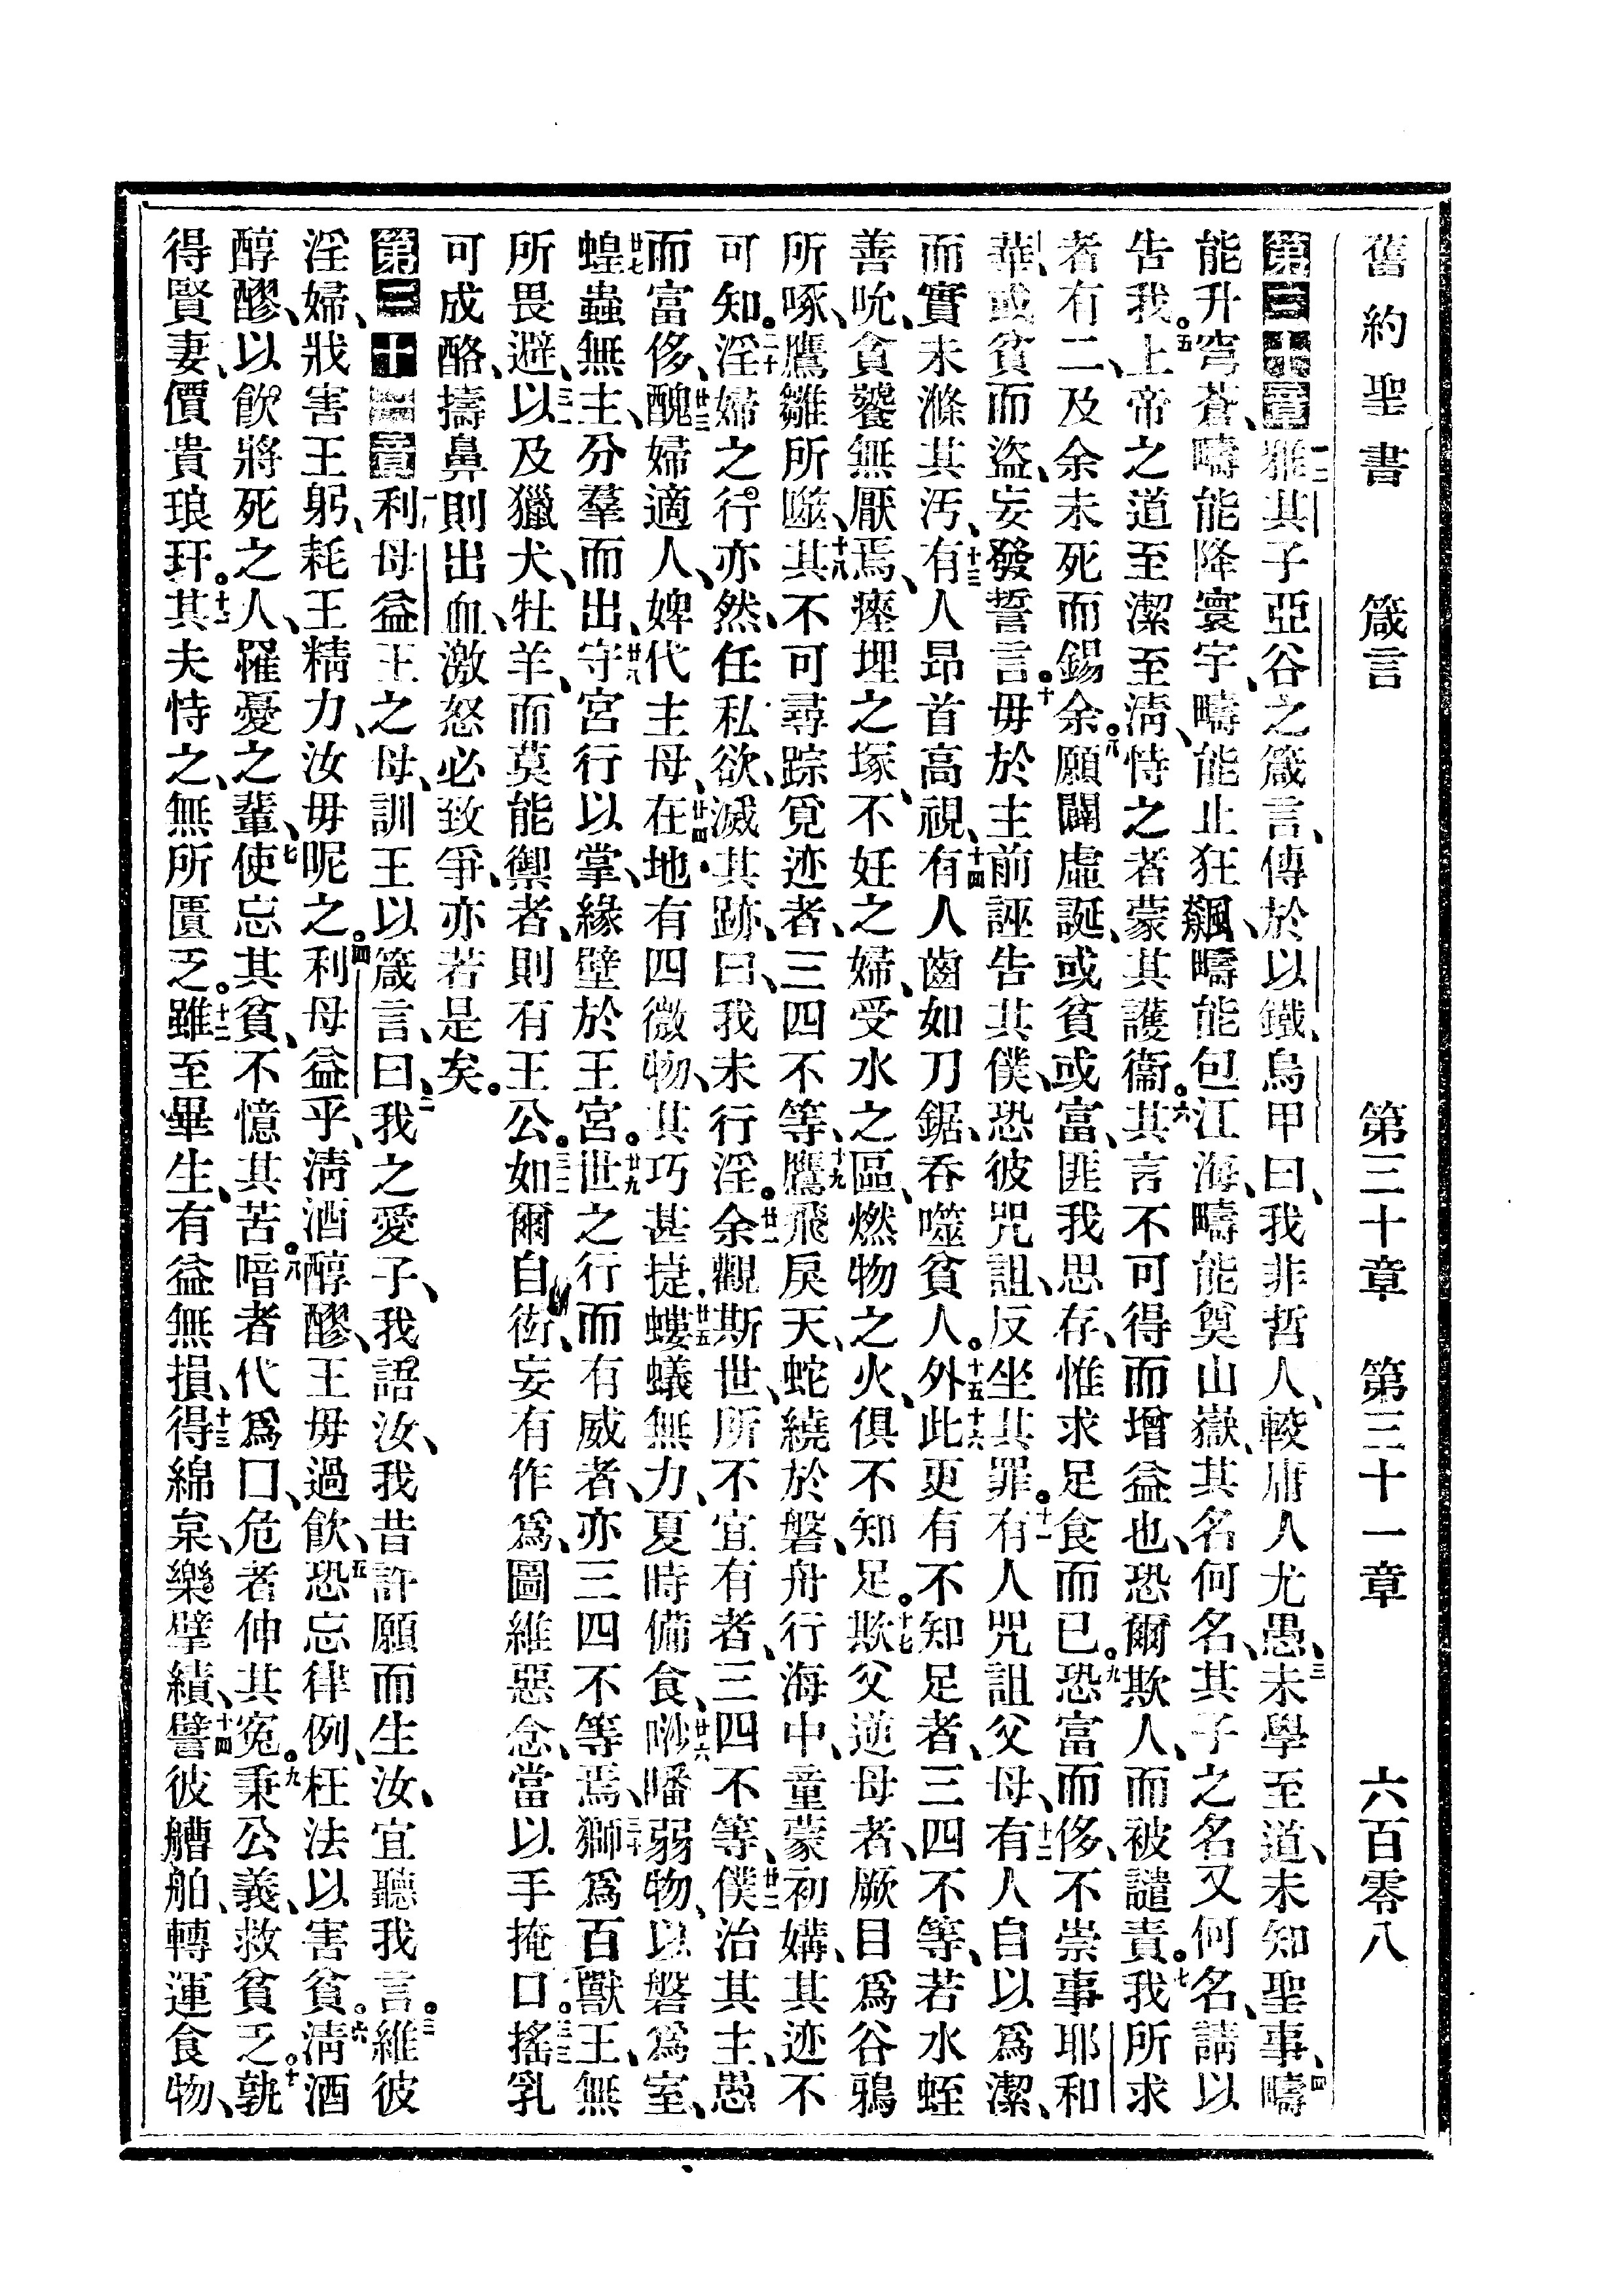 舊約聖書 箴言 第三十章 第三十一章 六百零八
第三十章 一二雅其子亞谷之箴言、傳於以鐵、烏甲曰、我非哲人、較庸人尤愚、三未學至道、未知聖事、四疇
能升穹蒼、疇能降寰宇、疇能止狂飆、疇能包江海、疇能奠山嶽、其名何名、其子之名又何名、請以
告我。五上帝之道至潔至淸、恃之者蒙其護衞。六其言不可得而增益也、恐爾欺人、而被譴責。七我所求
者有二、及余未死而錫余。八願闢虛誕、或貧或富、匪我思存、惟求足食而已。九恐富而侈、不崇事耶和
華、或貧而盜、妄發誓言。十毋於主前誣告其僕、恐彼咒詛、反坐其罪。十一有人咒詛父母、十二有人自以爲潔、
而實未滌其汚、十三有人昂首高視、十四有人齒如刀鋸、吞噬貧人。十五外此十六更有不知足者、三四不等、若水蛭
善吮、貪饕無厭焉、瘞埋之塚、不妊之婦、受水之區、燃物之火、俱不知足。十七欺父逆母者、厥目爲谷鴉
所啄、鷹雛所噬、十八其不可尋踪覓迹者、三四不等、十九鷹飛戾天、蛇繞於磐、舟行海中、童蒙初媾、其迹不
可知。二十淫婦之行亦然、任私欲、滅其跡、曰、我未行淫。廿一余觀斯世、所不宜有者、三四不等、廿二僕治其主、愚
而富侈、廿三醜婦適人、婢代主母、廿四在地有四微物、其巧甚捷、廿五螻蟻無力、夏時備食、廿六𠹌噃弱物、以磐爲室、
廿七蝗蟲無主、分羣而出、廿八守宮行以掌、緣壁於王宮。廿九世之行而有威者、亦三四不等焉、三十獅爲百獸王、無
所畏避、三一以及獵犬、牡羊、而莫能禦者、則有王公。三二如爾自衒、妄有作爲、圖維惡念、當以手掩口。三三搖乳
可成酪、擣鼻則出血、激怒必致爭、亦若是矣。
第三十一章 一利母益王之母、訓王以箴言、曰、二我之愛子、我語汝、我昔許願而生汝、宜聽我言。三維彼
淫婦、戕害王躬、耗王精力、汝毋昵之。四利母益乎、淸酒醇醪、王毋過飮、五恐忘律例、枉法以害貧。六淸酒
醇醪、以飮將死之人、罹憂之輩、七使忘其貧、不憶其苦。八喑者代爲口、危者伸其寃。九秉公義、救貧乏。十孰
得賢妻、價貴琅玕。十一其夫恃之、無所匱乏。十二雖至畢生、有益無損、十三得綿枲、樂擘績、十四譬彼艚舶、轉運食物、